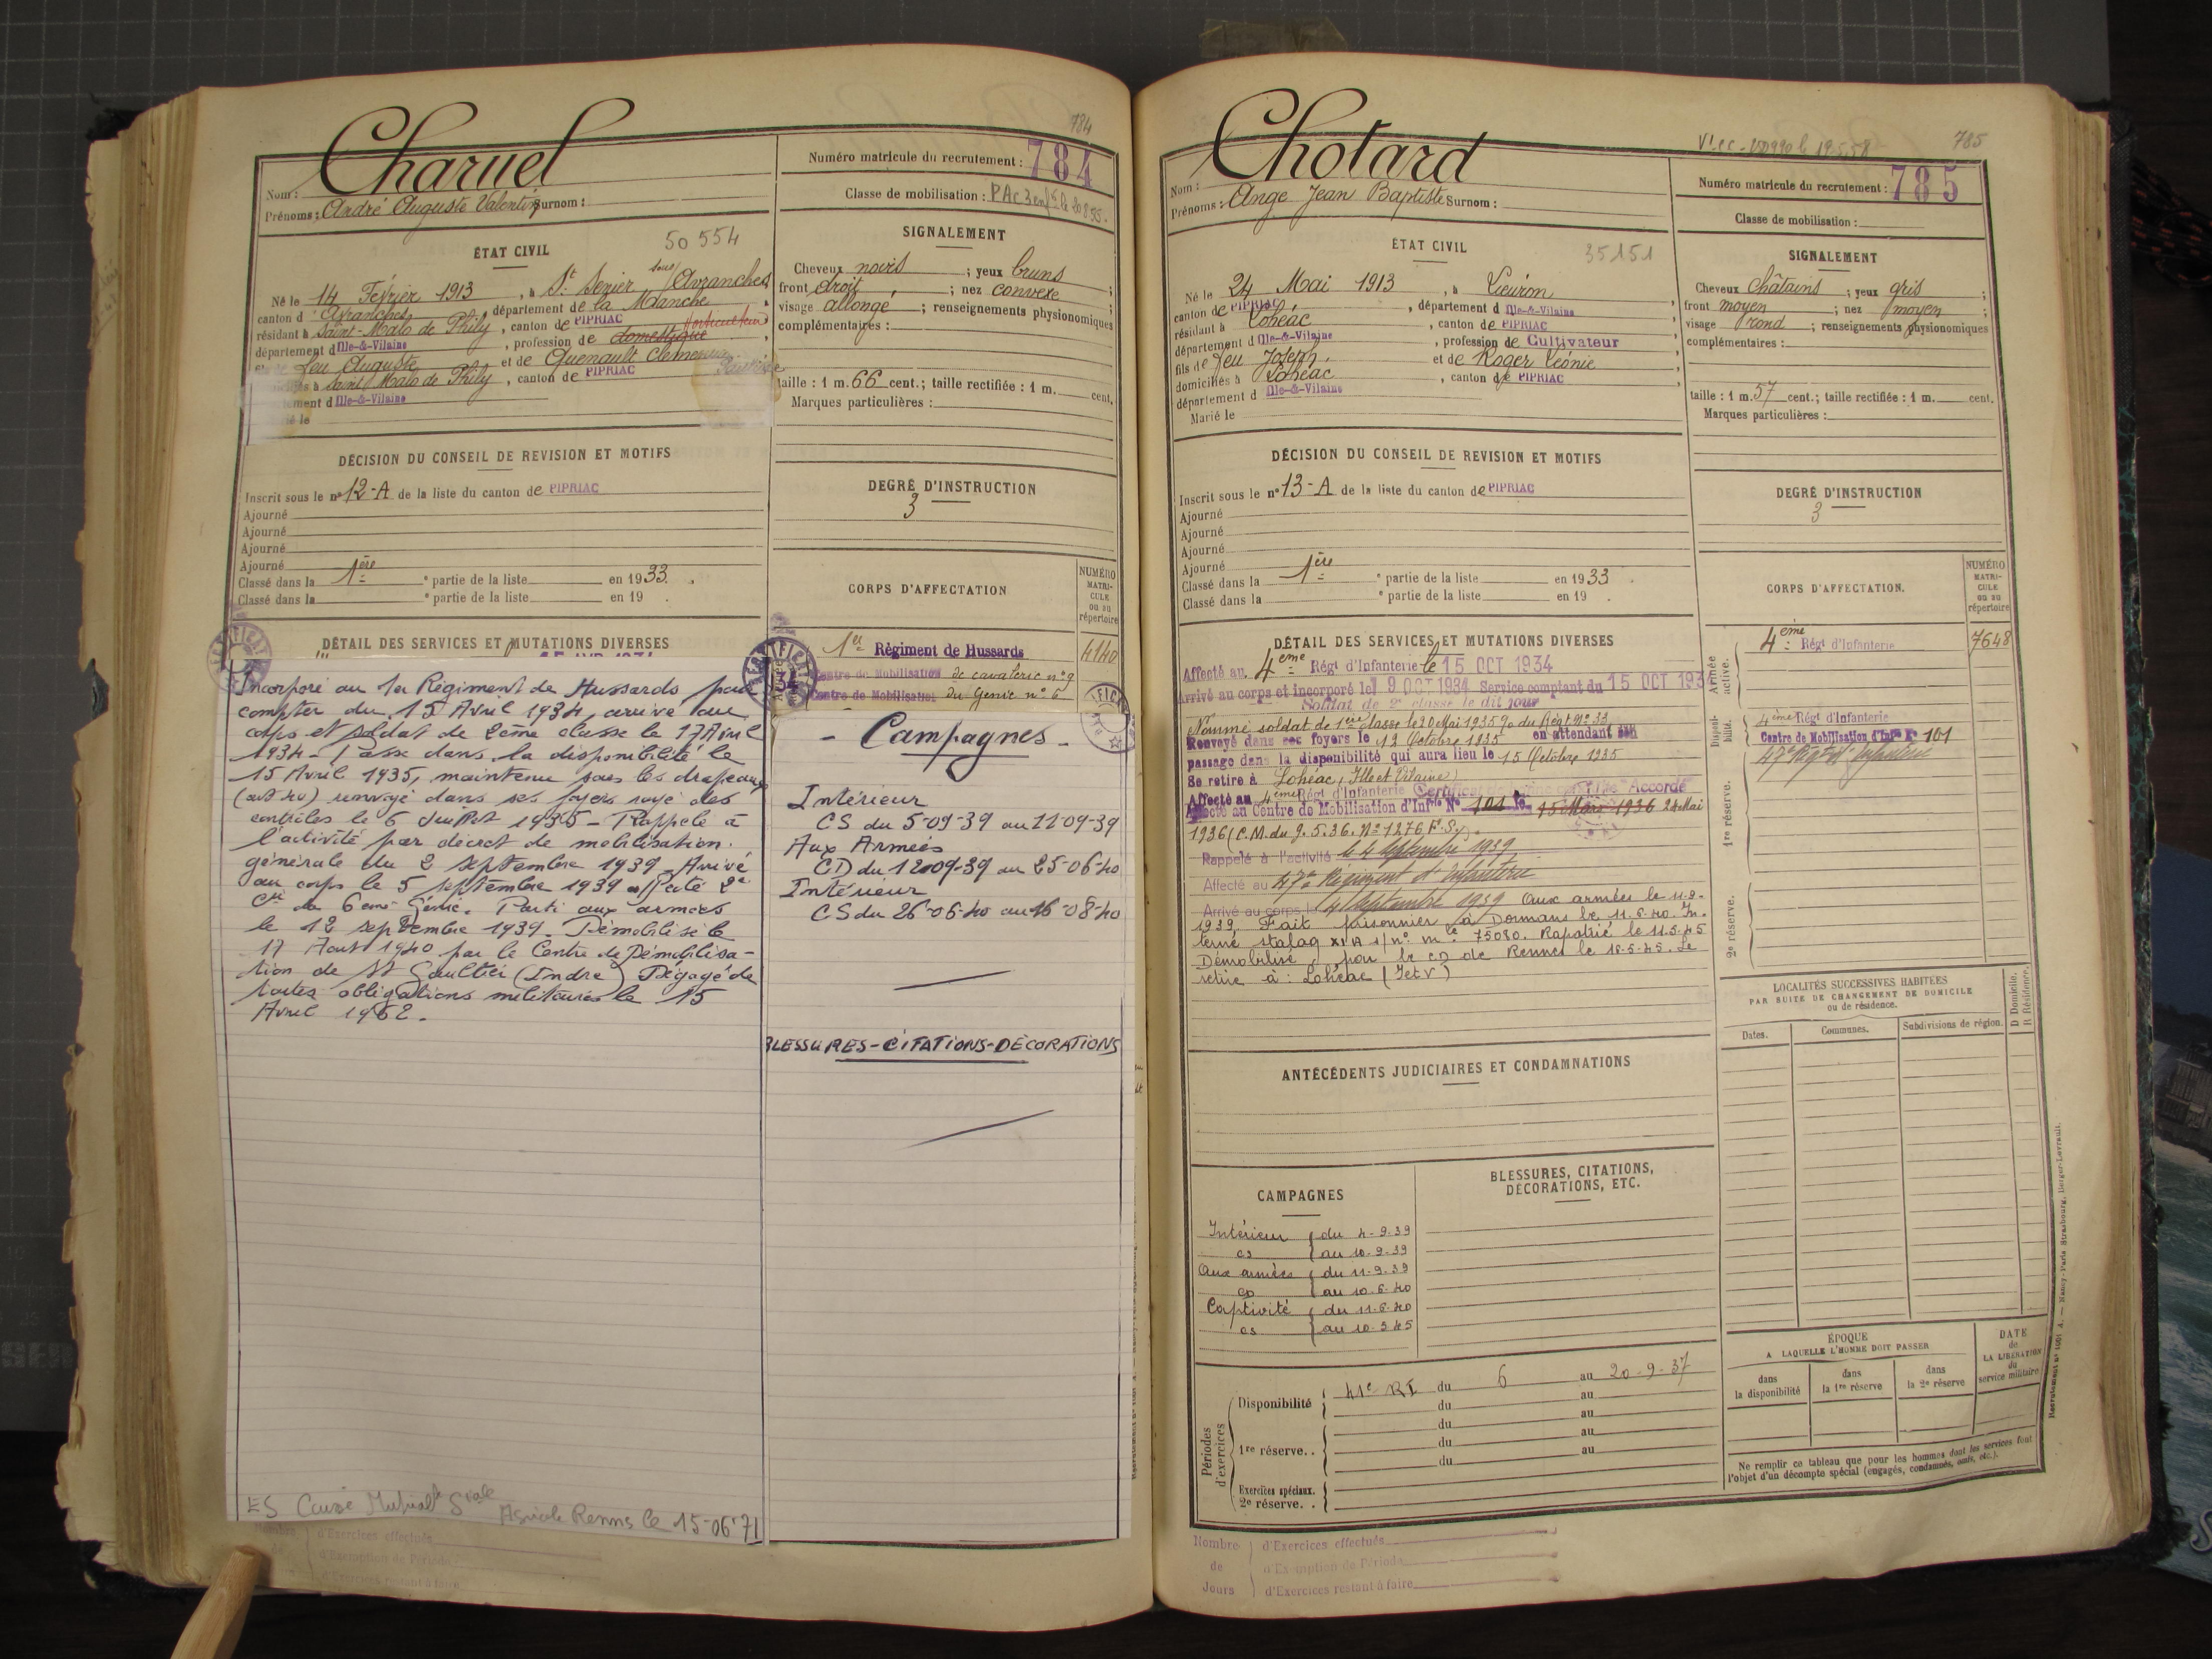 784
Charuel
Nom :
Prénoms : André Auguste Valentin Surnom :
Numéro matricule du recrutement : 784
Classe de mobilisation : PAC 3 enfts le 20 8 55.
ÉTAT CIVIL
50 554
Né le 14 Février 1913, à St. Senier sous Avranches
canton d'Avranches, département de la Manche
résidant à Saint-Malo de Phily, canton de PIPRIAC
Horticulteur
département d Ille-&-Vilaine, profession de domestique
feu Auguste et de Quenault Clémentine
à Saint Malo de Phily, canton de PIPRIAC
département d Ille-&-Vilaine
SIGNALEMENT
Cheveux noirs ; yeux bruns ;
front droit ; nez convexe ;
visage allongé ; renseignements physionomiques
complémentaires :
taille : 1 m. 66 cent. ; taille rectifiée : 1 m. cent.
Marques particulières :
DÉCISION DU CONSEIL DE REVISION ET MOTIFS
Inscrit sous le n° 12-A de la liste du canton de PIPRIAC
Ajourné
Ajourné
Ajourné
Ajourné
Classé dans la 1ère e partie de la liste en 1933.
Classé dans la e partie de la liste en 19 .
DEGRÉ D'INSTRUCTION
3
CORPS D'AFFECTATION
NUMÉRO
MATRI-
CULE
ou au
répertoire
1er Régiment de Hussards 4140
Centre de Mobilisation de cavalerie n° 9
Centre de Mobilisation du Génie n° 6
DÉTAIL DES SERVICES ET MUTATIONS DIVERSES
Incorporé au 1er Régiment de Hussards pour
compter du 15 Avril 1934, arrivé au
corps et soldat de 2ème classe le 17 Avril
1934 - Passé dans la disponibilité le
15 Avril 1935, maintenu sous les drapeaux
(art 40) renvoyé dans ses foyers rayé des
contrôles le 6 Juillet 1935 - Rappelé à
l'activité par décret de mobilisation
générale du 2 septembre 1939. Arrivé
au corps le 5 septembre 1939 affecté 2e
Cie du 6ème Génie. Parti aux armées
le 12 septembre 1939. Démobilisé le
17 Août 1940 par le Centre de Démobilisa-
tion de St Gaultier (Indre) Dégagé de
toutes obligations militaires le 15
Avril 1962.
- Campagnes -
Intérieur
CS du 5-09-39 au 11-09-39
Aux Armées
CD du 12-09-39 au 25-06-40
Intérieur
CS du 26-06-40 au 16-08-40
BLESSURES-CITATIONS-DÉCORATIONS
ES Caisse Mutualté Siale Agricole Rennes le 15-06-71
Nombre
d'Exercices effectués
d'Exemption de Période
d'Exercices restant à faire
785
Chotard
Nom :
Prénoms : Ange Jean Baptiste Surnom :
Numéro matricule du recrutement : 785
Classe de mobilisation :
ÉTAT CIVIL
35151
Né le 24 Mai 1913, à Lieuron
canton de PIPRIAC, département d Ille-&-Vilaine
résidant à Lohéac, canton de PIPRIAC
département d Ille-&-Vilaine, profession de Cultivateur
fils de feu Joseph, et de Roger Léonie
domiciliés à Lohéac, canton de PIPRIAC
département d Ille-&-Vilaine
Marié le
SIGNALEMENT
Cheveux châtains ; yeux gris ;
front moyen ; nez moyen ;
visage rond ; renseignements physionomiques
complémentaires :
taille : 1 m. 57 cent. ; taille rectifiée : 1 m. cent.
Marques particulières :
DÉCISION DU CONSEIL DE REVISION ET MOTIFS
Inscrit sous le n° 13-A de la liste du canton de PIPRIAC
Ajourné
Ajourné
Ajourné
Ajourné
Classé dans la 1ère e partie de la liste en 1933.
Classé dans la e partie de la liste en 19 .
DEGRÉ D'INSTRUCTION
3
CORPS D'AFFECTATION.
NUMÉRO
MATRI-
CULE
ou au
répertoire
Armée active.
4ème Régt d'Infanterie 7648
Disponibilité.
4ème Régt d'Infanterie
Centre de Mobilisation d'Infrie N° 101
47e Régt d'Infanterie
1re réserve.
2e réserve.
DÉTAIL DES SERVICES ET MUTATIONS DIVERSES
Affecté au 4ème Régt d'Infanterie le 15 OCT 1934
Arrivé au corps et incorporé le 19 OCT 1934 Service comptant du 15 OCT 1934
Soldat de 2e classe le dit jour
Nommé soldat de 1ère classe le 20 Mai 1935 du Régt N° 33
Renvoyé dans ses foyers le 12 Octobre 1935 en attendant son
passage dans la disponibilité qui aura lieu le 15 Octobre 1935
Se retire à Lohéac, Ille et Vilaine
Affecté au 4ème Régt d'Infanterie Certificat de Bonne Accordé
Affecté au Centre de Mobilisation d'Infrie N° 101 le 15 Mars 1936 24 Mai
1936 (C.M. du 9.5.36. N° 1276 F.S.)
Rappelé à l'activité le 4 Septembre 1939
Affecté au 47e Régiment d'Infanterie
Arrivé au corps le 4 Septembre 1939 Aux armées le 11-9-
1939. Fait prisonnier à Dormans le 11.6.40. In-
terné stalag XI A s/ n° mle 75080. Rapatrié le 11.5.45
Démobilisé par le CD de Rennes le 18-5-45. Se
retire à : Lohéac (I et V)
LOCALITÉS SUCCESSIVES HABITÉES
PAR SUITE DE CHANGEMENT DE DOMICILE
ou de résidence.
Dates. Communes. Subdivisions de région. D Domicile. R Résidence.
ANTÉCÉDENTS JUDICIAIRES ET CONDAMNATIONS
CAMPAGNES
Intérieur du 4-9-39
cs au 10-9-39
Aux armées du 11-9-39
CD au 10-6-40
Captivité du 11-6-40
cs au 10-5-45
BLESSURES, CITATIONS,
DÉCORATIONS, ETC.
Périodes d'exercices
Disponibilité 41e RI du 6 au 20-9-37
du au
du au
1re réserve. . du au
du au
Exercices spéciaux.
2e réserve. .
ÉPOQUE
A LAQUELLE L'HOMME DOIT PASSER
dans la disponibilité
dans la 1re réserve
dans la 2e réserve
DATE
de
LA LIBÉRATION
du
service militaire
Ne remplir ce tableau que pour les hommes dont les services font
l'objet d'un décompte spécial (engagés, condamnés, omis, etc.).
Recrutement n° 1001 A. — Nancy-Paris-Strasbourg, Berger-Levrault.
Nombre
de
Jours
d'Exercices effectués
d'Exemption de Période
d'Exercices restant à faire